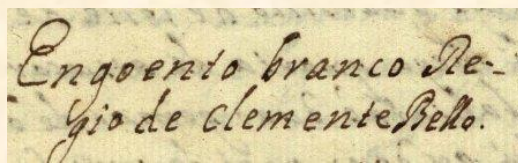 Engoento branco Re-
gio de Clemente Bello.